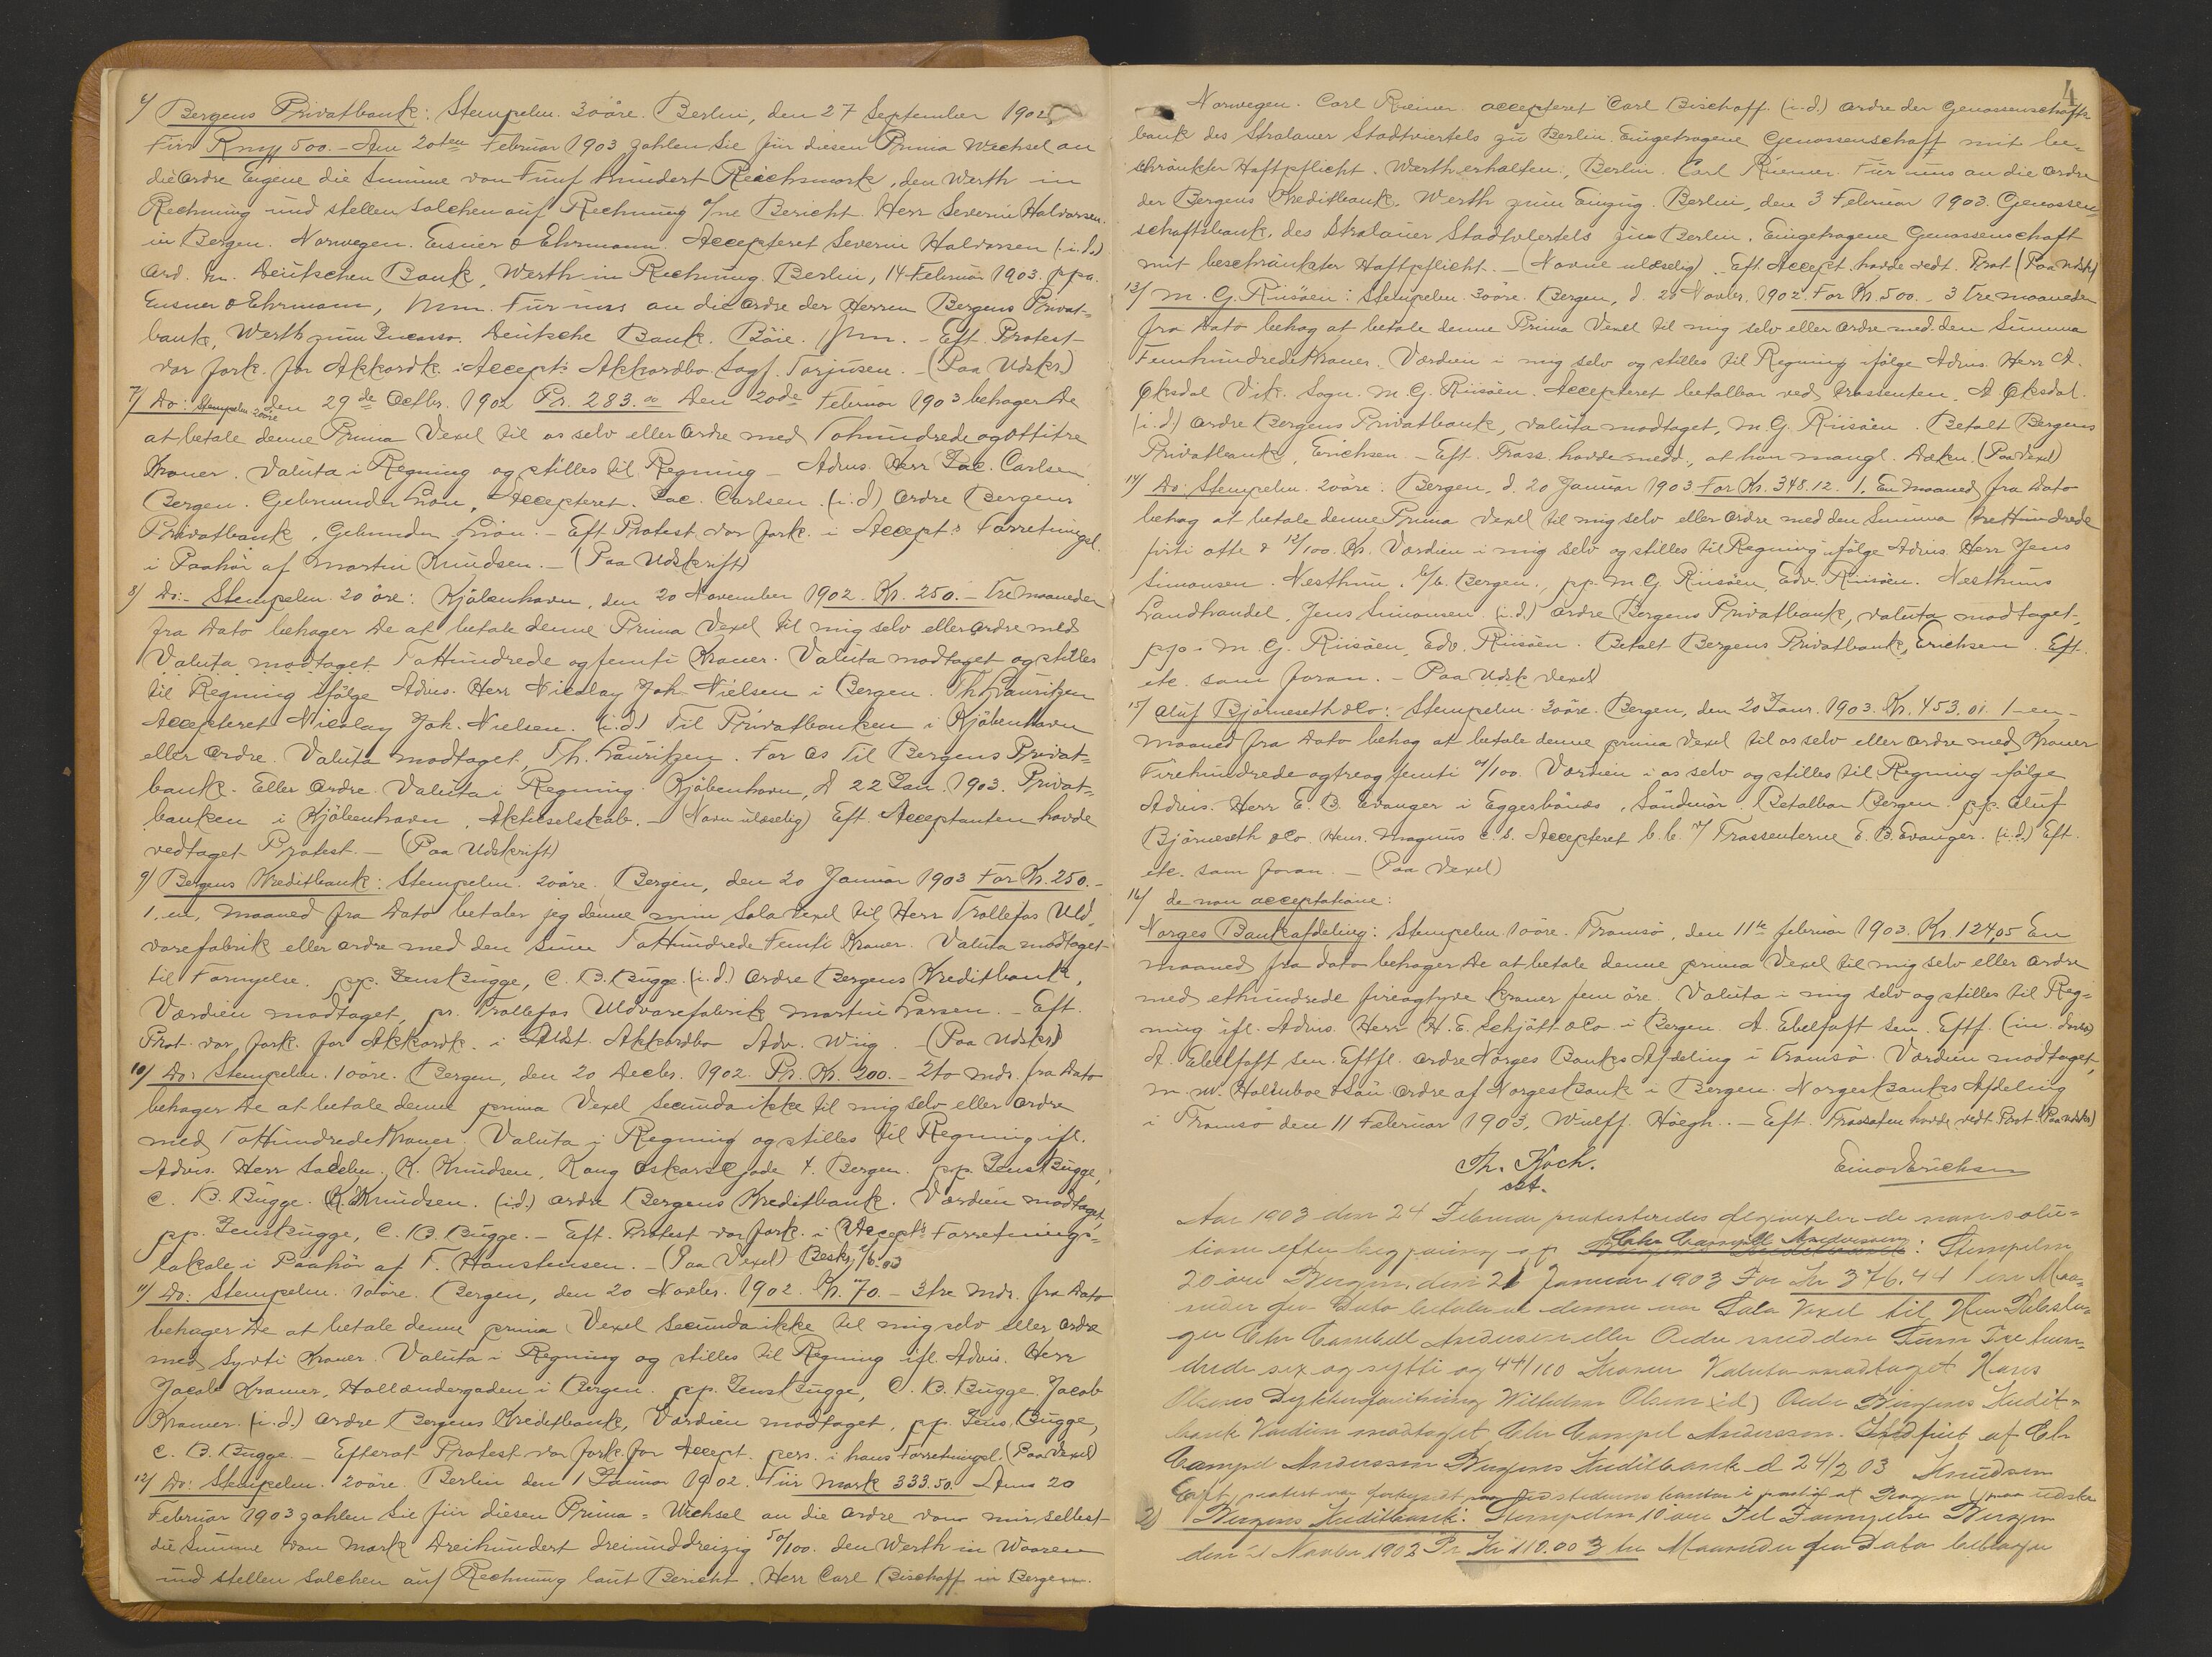 6/ Bergens Privatbank: Stempelm. 30 öre. Berlin, den 27 September 1902
Für Rmk 500.- Den 20ten Februar 1903 zahlen Sie für diesen Prima Wechsel an
die Ordre Eigene die Summe von Fünf hundert Reichsmark, den Werth in
Rechnung und stellen solchen auf Rechnung o/ne Bericht. Herr Severin Halvorsen.
in Bergen. Norwegen. Eisner & Ehrmann. Accepteret Severin Halvorsen (i.d.)
Ord. Deutschen Bank, Werth in Rechnung. Berlin, 14 Februar 1903. ppa.
Eisner & Ehrmann, Für uns an die Ordre der Herren Bergens Privat-
bank, Werth zum Incasso. Deutsche Bank. Böie. - Eft. Protest
var fork. for Akkordk. i Accept.s Akkordbo Sagf. Torjusen. - (Paa Udskr.)
7/ Do: Stempelm. 20 öre den 29de Octbr. 1902 Pr. 283.00 Den 20de Februar 1903 behager De
at betale denne Prima Vexel til os selv eller Ordre med Tohundrede og ottitre
Kroner. Valuta i Regning og stilles til Regning - Advis. Herr Jac. Carlsen
Bergen. Gebrunder Accepteret. Jac. Carlsen. (i.d.) Ordre Bergens
Privatbank, - Eft. Protest var fork. i Accept.s Forretningsl.
i Paahör af Martin Knudsen. - (Paa Udskrift)
8/ Do: - Stempelm. 20 öre: Kjöbenhavn, den 20 November 1902. Kr. 250.- Tre maaneder
fra Dato behager De at betale denne Prima Vexel til mig selv eller Ordre med
Valuta modtaget ToHundrede og femti Kroner. Valuta modtaget og stilles
til Regning ifölge Advis. Herr Nicolay Joh. Nielsen i Bergen. Th Lauritzen
Accepteret Nicolay Joh. Nielsen. (i.d.) Til Privatbanken i Kjöbenhavn
eller Ordre. Valuta modtaget, Th. Lauritzen. For os til Bergens Privat-
bank. Eller Ordre. Valuta i Regning. Kjöbenhavn, d 22 Jan. 1903. Privat-
banken i Kjöbenhavn, Aktieselskab. - (Navn ulæselig) Eft. Acceptanten havde
vedtaget Protest. - (Paa Udskrift)
9/ Bergens Kreditbank: Stempelm. 20 öre. Bergen, den 20 Januar 1903 For Kr. 250.-
1, en, maaned fra Dato betaler jeg denne min Sola Vexel til Herr Trollefos Uld-
varefabrik eller Ordre med den Sum ToHundrede Femti Kroner. Valuta modtaget
til Fornyelse. pp. Jens Bugge, C. B. Bugge. (i.d.) Ordre Bergens Kreditbank,
Værdien modtaget, pr. Trollefos Uldvarefabrik Martin Larsen. - Eft.
Prot. var fork. for Akkordk. i Akkordbo Adv. Wiig. - (Paa Udskr)
10/ Do: Stempelm. 10 öre. Bergen, den 20 Decbr. 1902. Pr. Kr. 200. - 2 to mdr. fra Dato
behager De at betale denne prima Vexel Secunda ikke til mig selv eller Ordre
med ToHundrede Kroner. Valuta i Regning og stilles til Regning ifl.
Advis. Herr K. Knudsen, Kong Oskarsgade 4. Bergen. pp. Jens Bugge,
C. B. Bugge. K. Knudsen. (i.d.) Ordre Bergens Kreditbank. Værdien modtaget,
pp. Jens Bugge, C. B. Bugge. - Eft. Protest var fork. i Accept.s Forretnings-
lokale i Paahör af T. Haustensen. - (Paa Vexel)
11/ Do: Stempelm. 10 öre. Bergen, den 20 Novbr. 1902. Kr. 70. - 3 tre mdr. fra Dato
behager De at betale denne prima Vexel Secunda ikke til mig selv eller Ordre
med Sytti Kroner. Valuta i Regning og stilles til Regning ifl. Advis. Herr
Jacob Kramer, Hollændergaden i Bergen. pp. Jens Bugge, C. B. Bugge. Jacob
Kramer. (i.d.) Ordre Bergens Kreditbank, Værdien modtaget, pp. Jens Bugge,
C. B. Bugge. - Efterat Protest var fork. for Accept. pers. i hans Forretningsl. (Paa Vexel)
12/ Do: Stempelm. 20 öre. Berlin den 1 Januar 1902. Für Mark 333.50. - Am 20
Februar 1903 zahlen Sie für diesen Prima = Wechsel an die Ordre von mir selbst
die Summe von Mark Dreihundert dreiunddreizig 50/100. den Werth in Waaren
und stellen solchen auf Rechnung laut Bericht. Herr Carl Bischoff in Bergen.
4
Norwegen. Carl Riemer. accepteret Carl Bischoff. (i.d.) Ordre der Genossenschafts
bank des Stralauer Stadtviertels zu Berlin Eingetragene Genossenschaft mit be-
schränkter Haftpflicht. Werth erhalten, Berlin. Carl Riemer. Für uns an die Ordre
der Bergens Kreditbank. Werth zum Einzug. Berlin, den 3 Februar 1903. Genossen-
schaftsbank des Stralauer Stadtviertels zu Berlin. Eingetragene Genossenschaft
mit beschränkter Haftpflicht. - (Navne ulæselig). Eft. Accept. havde vedt. Prot. (Paa Udskr)
13/ M. G. Riisöen: Stempelm. 30 öre. Bergen, d. 20 Novbr. 1902. For Kr. 500., 3 Tre maaneder
fra Dato behag at betale denne Prima Vexel til mig selv eller Ordre med den Summa
Femhundrede Kroner. Værdien i mig selv og stilles til Regning ifölge Advis. Herr A.
Øksdal Vik. Sogn. M. G. Riisöen. Accepteret betalbar ved Trassenten. A. Øksdal.
(i.d.) Ordre Bergens Privatbank, valuta modtaget, M. G. Riisöen. Betalt Bergens
Privatbank, Erichsen. - Eft. Trass. havde medd., at han mangl. Dækn. (Paa Vexel)
14/ Do: Stempelm. 20 öre. Bergen, d. 20 Januar 1903 For Kr. 348.12. 1. En maaned fra Dato
behag at betale denne Prima Vexel til mig selv eller Ordre med den Summa treHundrede
firti otte & 12/100. Kr. Værdien i mig selv og stilles til Regning ifölge Advis. Herr Jens
Simonsen. Nesttun. Bergen., pp. M. G Riisöen, Edv. Riisöen. Nesttuns
Landhandel, Jens Simonsen. (i.d.) Ordre Bergens Privatbank, valuta modtaget,
pp. M. G. Riisöen, Edv. Riisöen. Betalt Bergens Privatbank, Erichsen. Eft.
etc. som foran. - Paa Udsk Vexel
15/ Oluf Björneseth & Co: Stempelm. 30 öre. Bergen, den 20 Janr. 1903. Kr. 453.01. 1 - en -
maaned fra Dato behag at betale denne prima Vexel til os selv eller Ordre med Kroner
Firehundrede og treog femti 01/100. Værdien i os selv og stilles til Regning ifölge
Advis. Herr E. B. Evanger i Eggesbönæs, Söndmör. Betalbar Bergen. pp. Oluf
Björneseth & Co. Henr. Magnus C. S. Accepteret b. b. Trassenterne E. B. Evanger. (i.d.) Eft.
etc. som foran. - (Paa Vexel)
16/ de non acceptatione:
Norges Bankafdeling: Stempelm. 10 öre. Tromsö, den 11te februar 1903. Kr. 124,05 En
maaned fra dato behager De at betale denne prima Vexel til mig selv eller Ordre
med ethundrede fireogtyve kroner fem öre. Valuta i mig selv og stilles til Reg-
ning ifl. Advis. Herr H. E. Schjött & Co i Bergen. A. Ebeltoft sen. Eftf. (in. dorso)
A. Ebeltoft sen. Eftfl. Ordre Norges Banks Afdeling i Tromsö. Værdien modtaget,
m. W. Holmboe & Sön Ordre af Norges Bank i Bergen. Norges Banks Afdeling
i Tromsö den 11 Februar 1903, Wulff. Höegh. - Eft. Trassaten havde vedt. Prot. (Paa Udskr)
Th. Koch.
Einar Erichsen
Aar 1903 den 24 Februar protesteredes flg. vexler de non solu-
tione efter begjæring af Chr Campell Andersson: Stempelm.
20 öre Bergen, den 21 Januar 1903 For Kr 376.44 1 en Maa-
neder fra Dato betaler denne vor Sola Vexel til Herr
Chr Cambell Andersson eller Ordre med den Sum Tre hun-
drede sex og sytti og 44/100 Kroner Valuta modtaget Hans
Olsens Dykkerforretning Wilhelm Olsen (i.d) Ordre Bergens Kredit-
bank Værdien modtaget Chr Campel Andersson. Indfriet af Chr
Campel Andersson Bergens Kreditbank d 24/2 03 Knudsen
Eft. protest var forkyndt
2) Bergens Kreditbank: Stempelm 10 öre Til Fornyelse Bergen
den 21 Novbr 1902 Pr Kr 110.00 3 tre Maaneder fra Dato behager